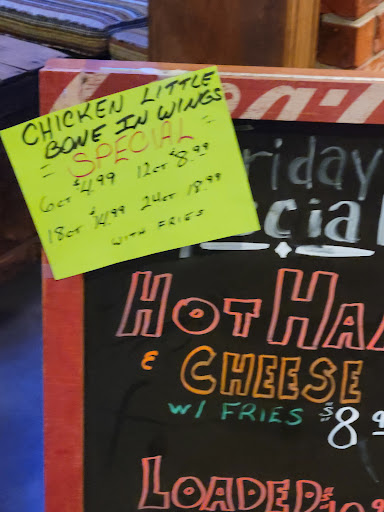 CHICKEN LITTLE
BONE IN WINGS
= SPECIAL =
6CT $4.99 12CT $8.99
18CT $14.99 24CT 18.99
WITH FRIES
riday
cial
HOT HA
& CHEESE
W/ FRIES $8
LOADED